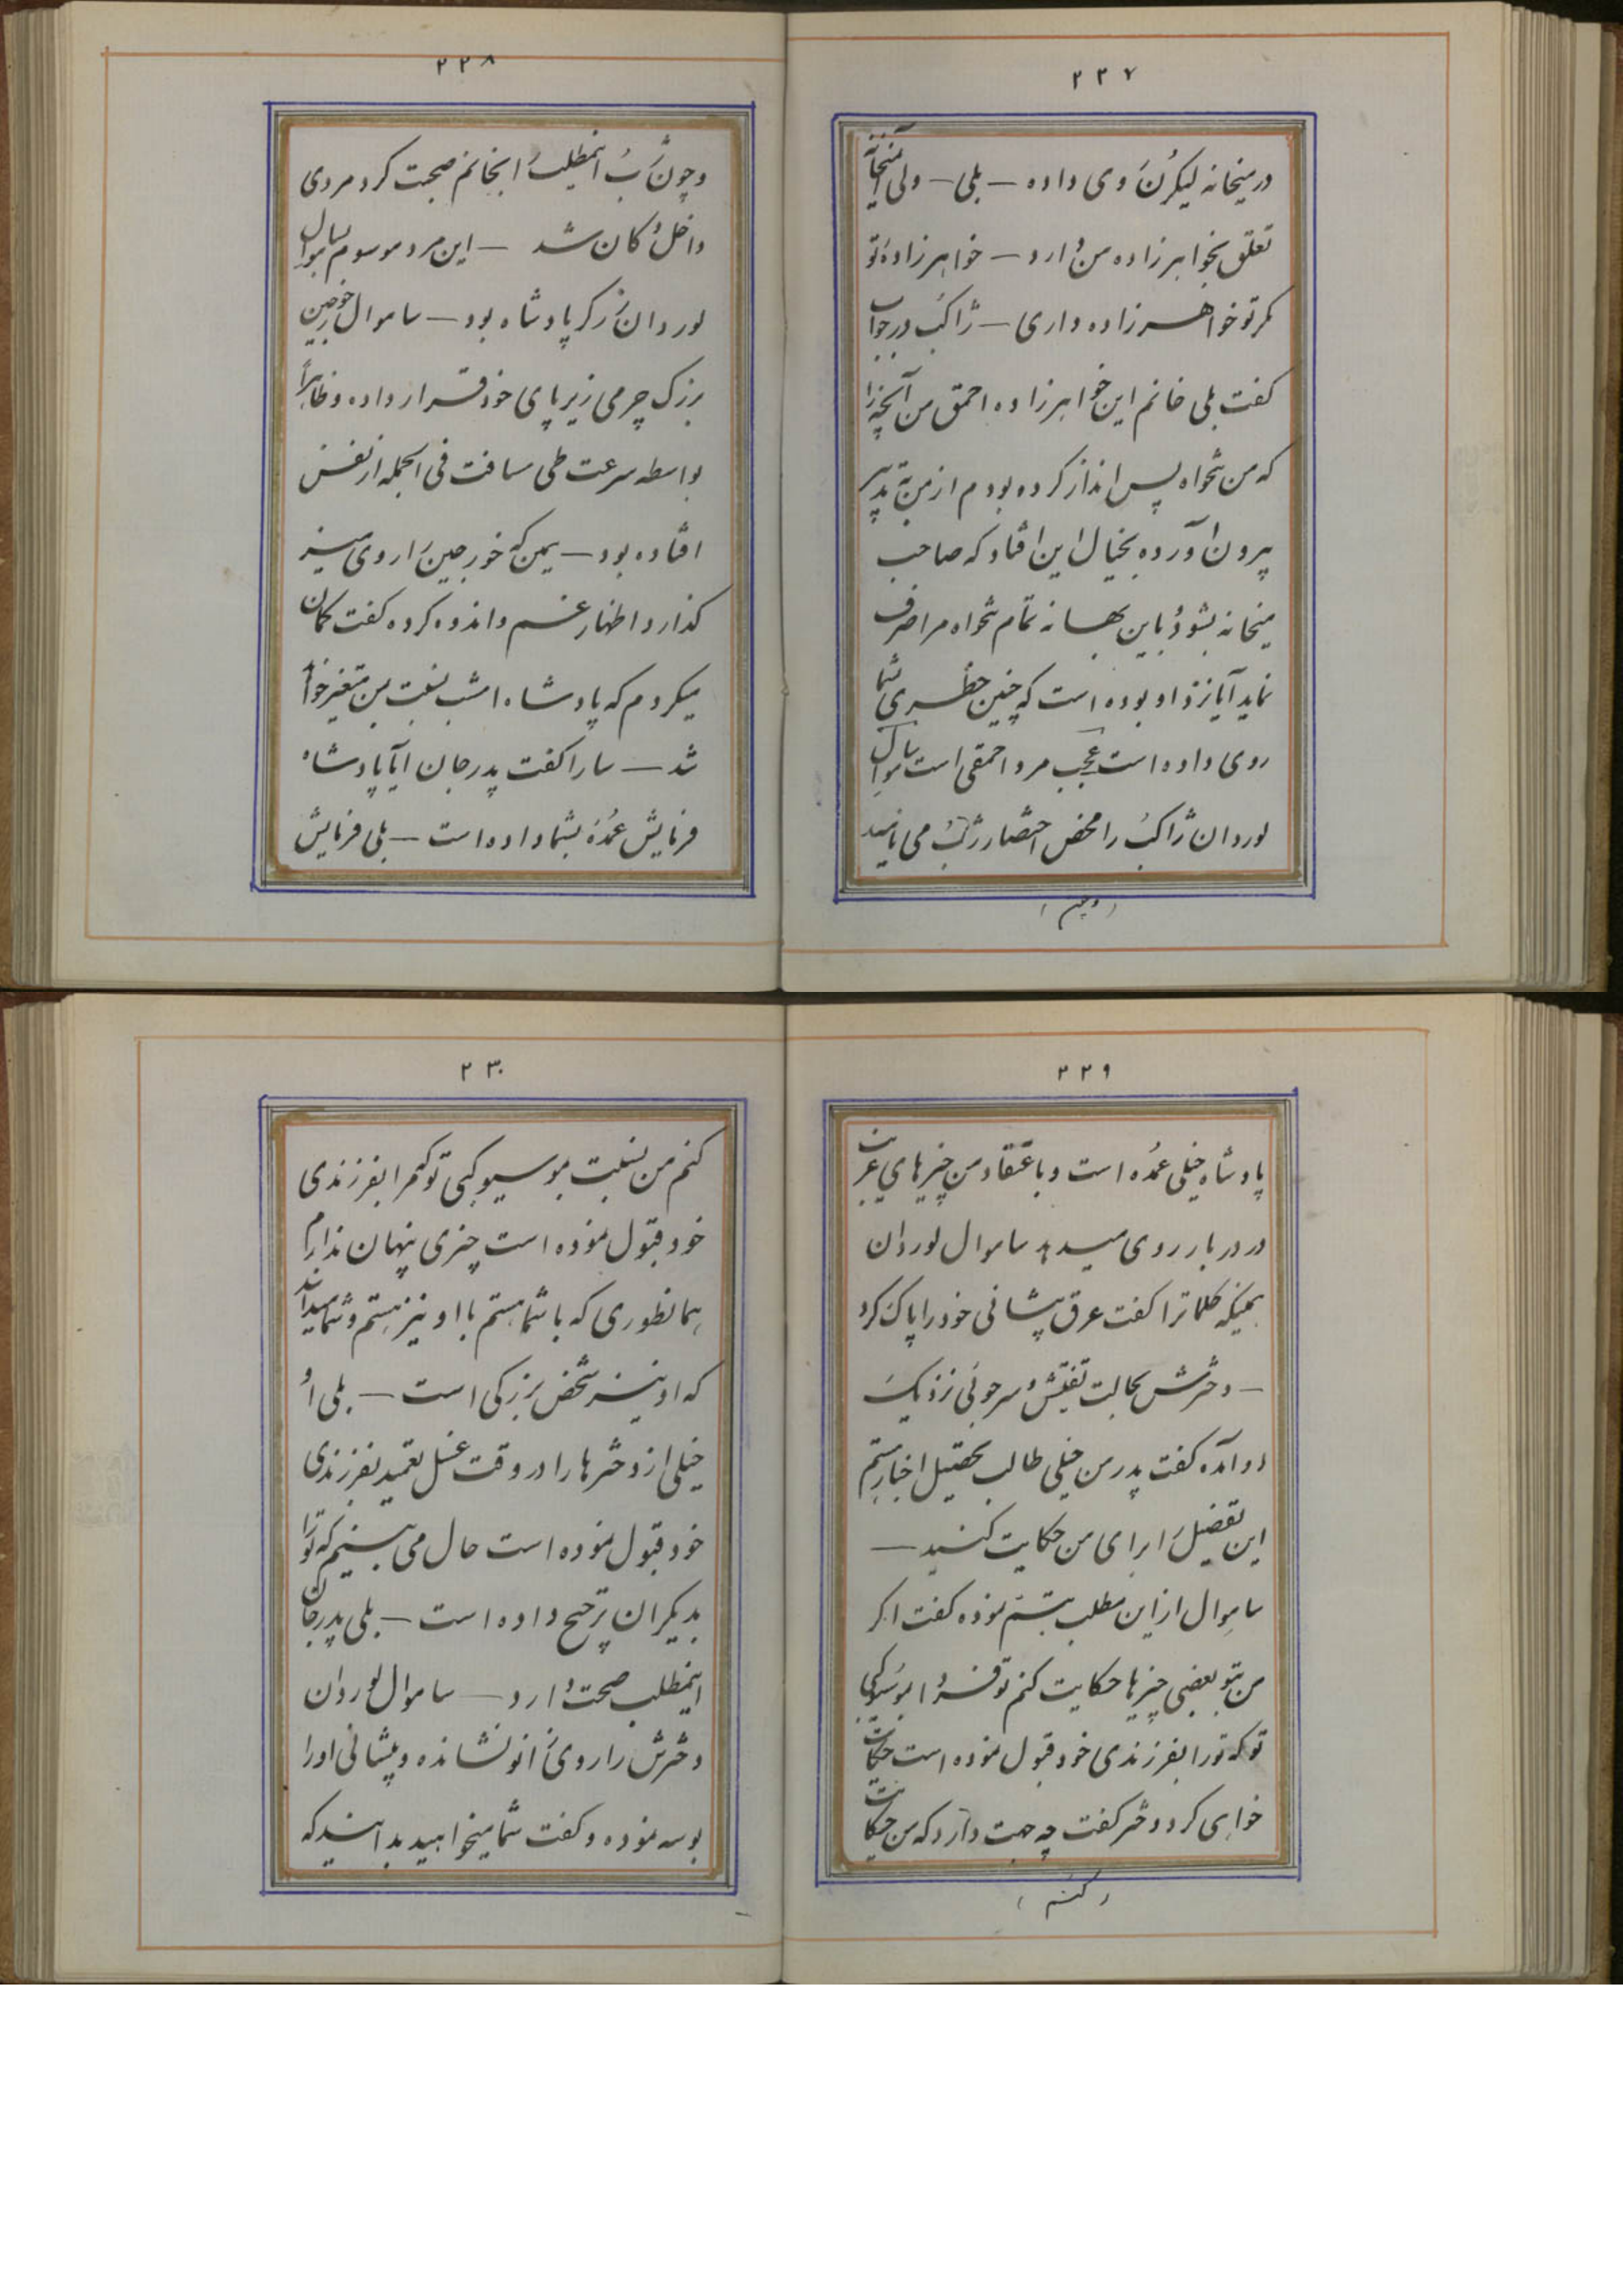 ۲۲۷
در میخانه لیکرن روی داده — بلی — ولی آن میخانه
تعلق بخواهرزاده من دارد — خواهرزاده تو
مگر تو خواهرزاده داری — ژاکب در جواب
گفت بلی خانم این خواهرزاده احمق من آنچه را
که من تنخواه پس انداز کرده بودم از من به تدبیر
بیرون آورده بخیال این افتاد که صاحب
میخانه بشود و باین بهانه تمام تنخواه مرا صرف
نماید آیا نزد او بوده است که چنین خطری شما
روی داده است عجب مرد احمقی است ساموال
لوردان ژاکب را محض اختصار ژب می نامید
(و چون)
۲۲۸
و چون ژب اینمطلب را بخانم صحبت کرد مردی
داخل دکان شد — این مرد موسوم بساموال
لوردان زرگر پادشاه بود — ساموال خورجین
بزرگ چرمی زیر پای خود قرار داده و ظاهراً
بواسطه سرعت طی مسافت فی الجمله از نفس
افتاده بود — همین که خورجین را روی میز
گذارد اظهار غم و اندوه کرده گفت گمان
میکردم که پادشاه امشب نسبت بمن متغیر خواهد
شد — سارا گفت پدر جان آیا پادشاه
فرمایش عمده بشما داده است — بلی فرمایش
۲۲۹
پادشاه خیلی عمده است و باعتقاد من چیزهای غریب
در دربار روی میدهد ساموال لوردان
همینکه کلمات را گفت عرق پیشانی خود را پاک کرد
— دخترش بحالت تفتیش و سرجوئی نزدیک
او آمده گفت پدر من خیلی طالب تحصیل اخبار هستم
این تفصیل را برای من حکایت کنید —
ساموال از این مطلب تبسم نموده گفت اگر
من بتو بعضی چیزها حکایت کنم تو فردا بموسیو کبی
تو که تو را بفرزندی خود قبول نموده است حکایت
خواهی کرد دختر گفت چه جهت دارد که من حکایت
(کنم)
۲۳۰
کنم من نسبت بموسیو کبی تو که مرا بفرزندی
خود قبول نموده است چیزی پنهان ندارم
همانطوری که با شما هستم با او نیز هستم و شما میدانید
که او نیز شخص بزرگی است — بلی او
خیلی از دخترها را در وقت غسل تعمید بفرزندی
خود قبول نموده است حال می بینیم که تو را
بدیگران ترجیح داده است — بلی پدر جان
اینمطلب صحت دارد — ساموال لوردان
دخترش را روی زانو نشانده و پیشانی او را
بوسه نموده و گفت شما میخواهید بدانید که